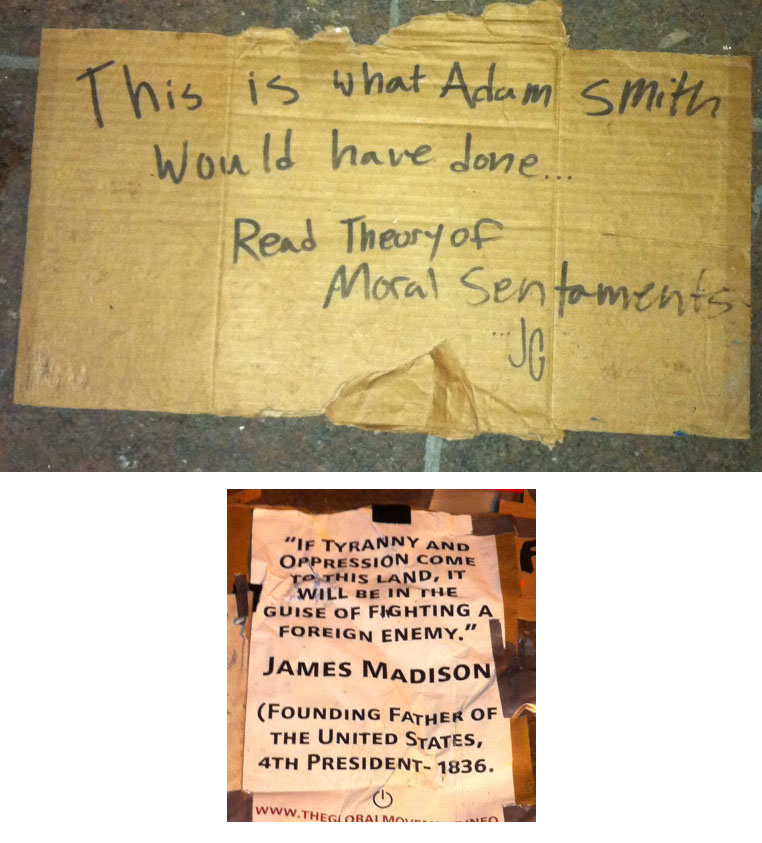 This is what Adam Smith
Would have done...
Read Theory of
Moral Sentaments
...JG
"IF TYRANNY AND
OPPRESSION COME
TO THIS LAND, IT
WILL BE IN THE
GUISE OF FIGHTING A
FOREIGN ENEMY."
JAMES MADISON
(FOUNDING FATHER OF
THE UNITED STATES,
4TH PRESIDENT- 1836.